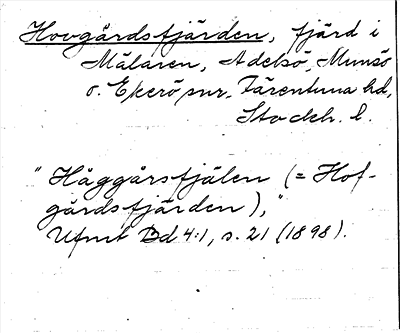 Hovgårdsfjärden, fjärd i
Mälaren, Adelsö, Munsö
o. Ekerö snr. Färentuna hd,
Stockh. l.
"Håggårsfjälen (= Hof-
gårdsfjärden),"
Ufmt Bd 4:1, s. 21 (1898).